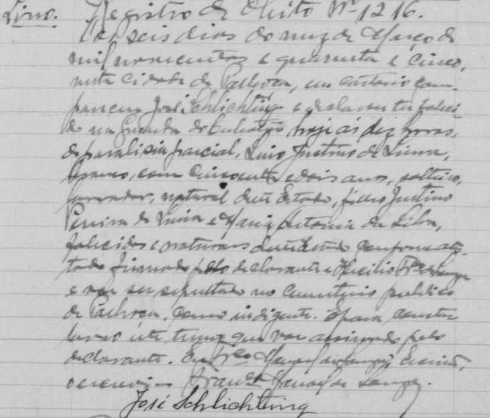 Lino. Registro de Obito Nº 1216.
Aos seis dias do mez de Março de
mil novecentos e quarenta e cinco,
nesta cidade de Palhoça, em cartorio com-
pareceu José Schlichting e declarou ter faleci-
do na Guarda do Cubatão, hoje ás dez horas,
de paralisia parcial, Lino Justino de Lima,
branco, com cincoenta e dois anos, solteiro,
lavrador, natural deste Estado, filho Justino
Pereira de Lima e Maria Antonia da Silva,
falecidos e naturais deste Estado conforme ates-
tado firmado pelo declarante e
e vai ser sepultado no cemiterio publico
de Palhoça, como indigente. E para constar
lavro este termo que vai assinado pelo
declarante. Eu, Escrivão,
o escrevi.
José Schlichting